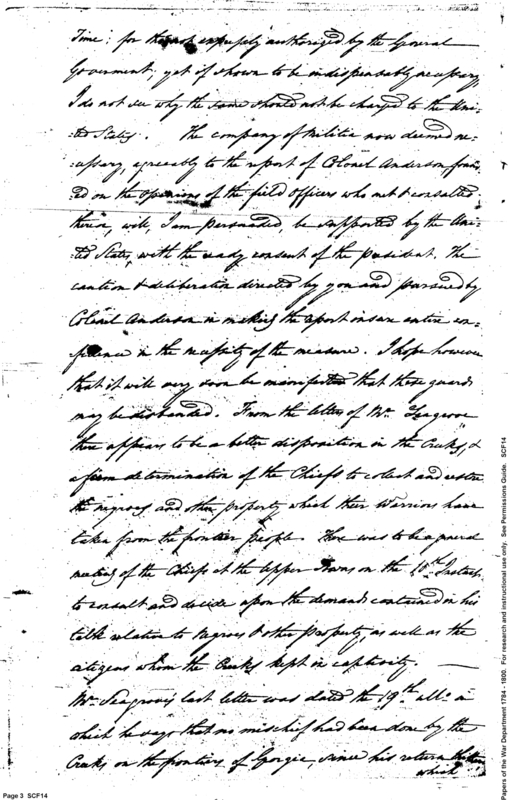 Time: for tho not expressly authorized by the General
Government, yet if shown to be indispensably necessary,
I do not see why the same should not be charged to the Uni-
:ted States. The company of Militia now deemed ne-
:cessary, agreeably to the report of Colonel Anderson, found-
:ed on the opinions of the field officers who met & consulted
therein, will, I am persuaded, be supported by the Uni-
:ted States, with the ready consent of the president. The
caution & deliberation directed by you and pursued by
Colonel Anderson in making the report ensure entire con-
:fidence in the necessity of the measure. I hope however
that it will very soon be manifested that these guards
may be disbanded. From the letters of Mr. Seagrove
there appears to be a better disposition in the Creeks, &
a firm determination of the Chiefs to collect and restore
the negroes and other property which their Warriors have
taken from the frontier people. There was to be a general
meeting of the Chiefs at the Upper Towns on the 10th Instant
to consult and decide upon the demands contained in his
talk relative to Negroes & other property, as well as the
citizens whom the Creeks kept in captivity. —
Mr. Seagrove's last letter was dated the 19th ulto. in
which he says that no mischief had been done by the
Creeks on the frontiers of Georgia since his return thither
which
Page 3 SCF14
Papers of the War Department 1784 - 1800. For research and instructional use only. See Permissions Guide. SCF14